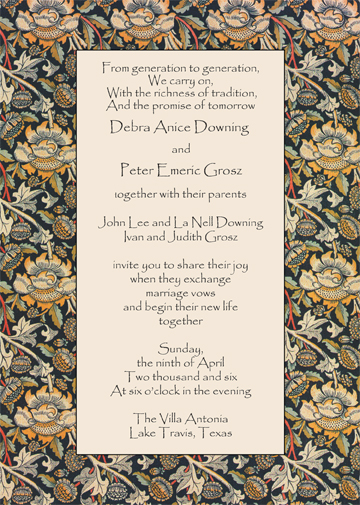 From generation to generation,
We carry on,
With the richness of tradition,
And the promise of tomorrow
Debra Anice Downing
and
Peter Emeric Grosz
together with their parents
John Lee and La Nell Downing
Ivan and Judith Grosz
invite you to share their joy
when they exchange
marriage vows
and begin their new life
together
Sunday,
the ninth of April
Two thousand and six
At six o'clock in the evening
The Villa Antonia
Lake Travis, Texas